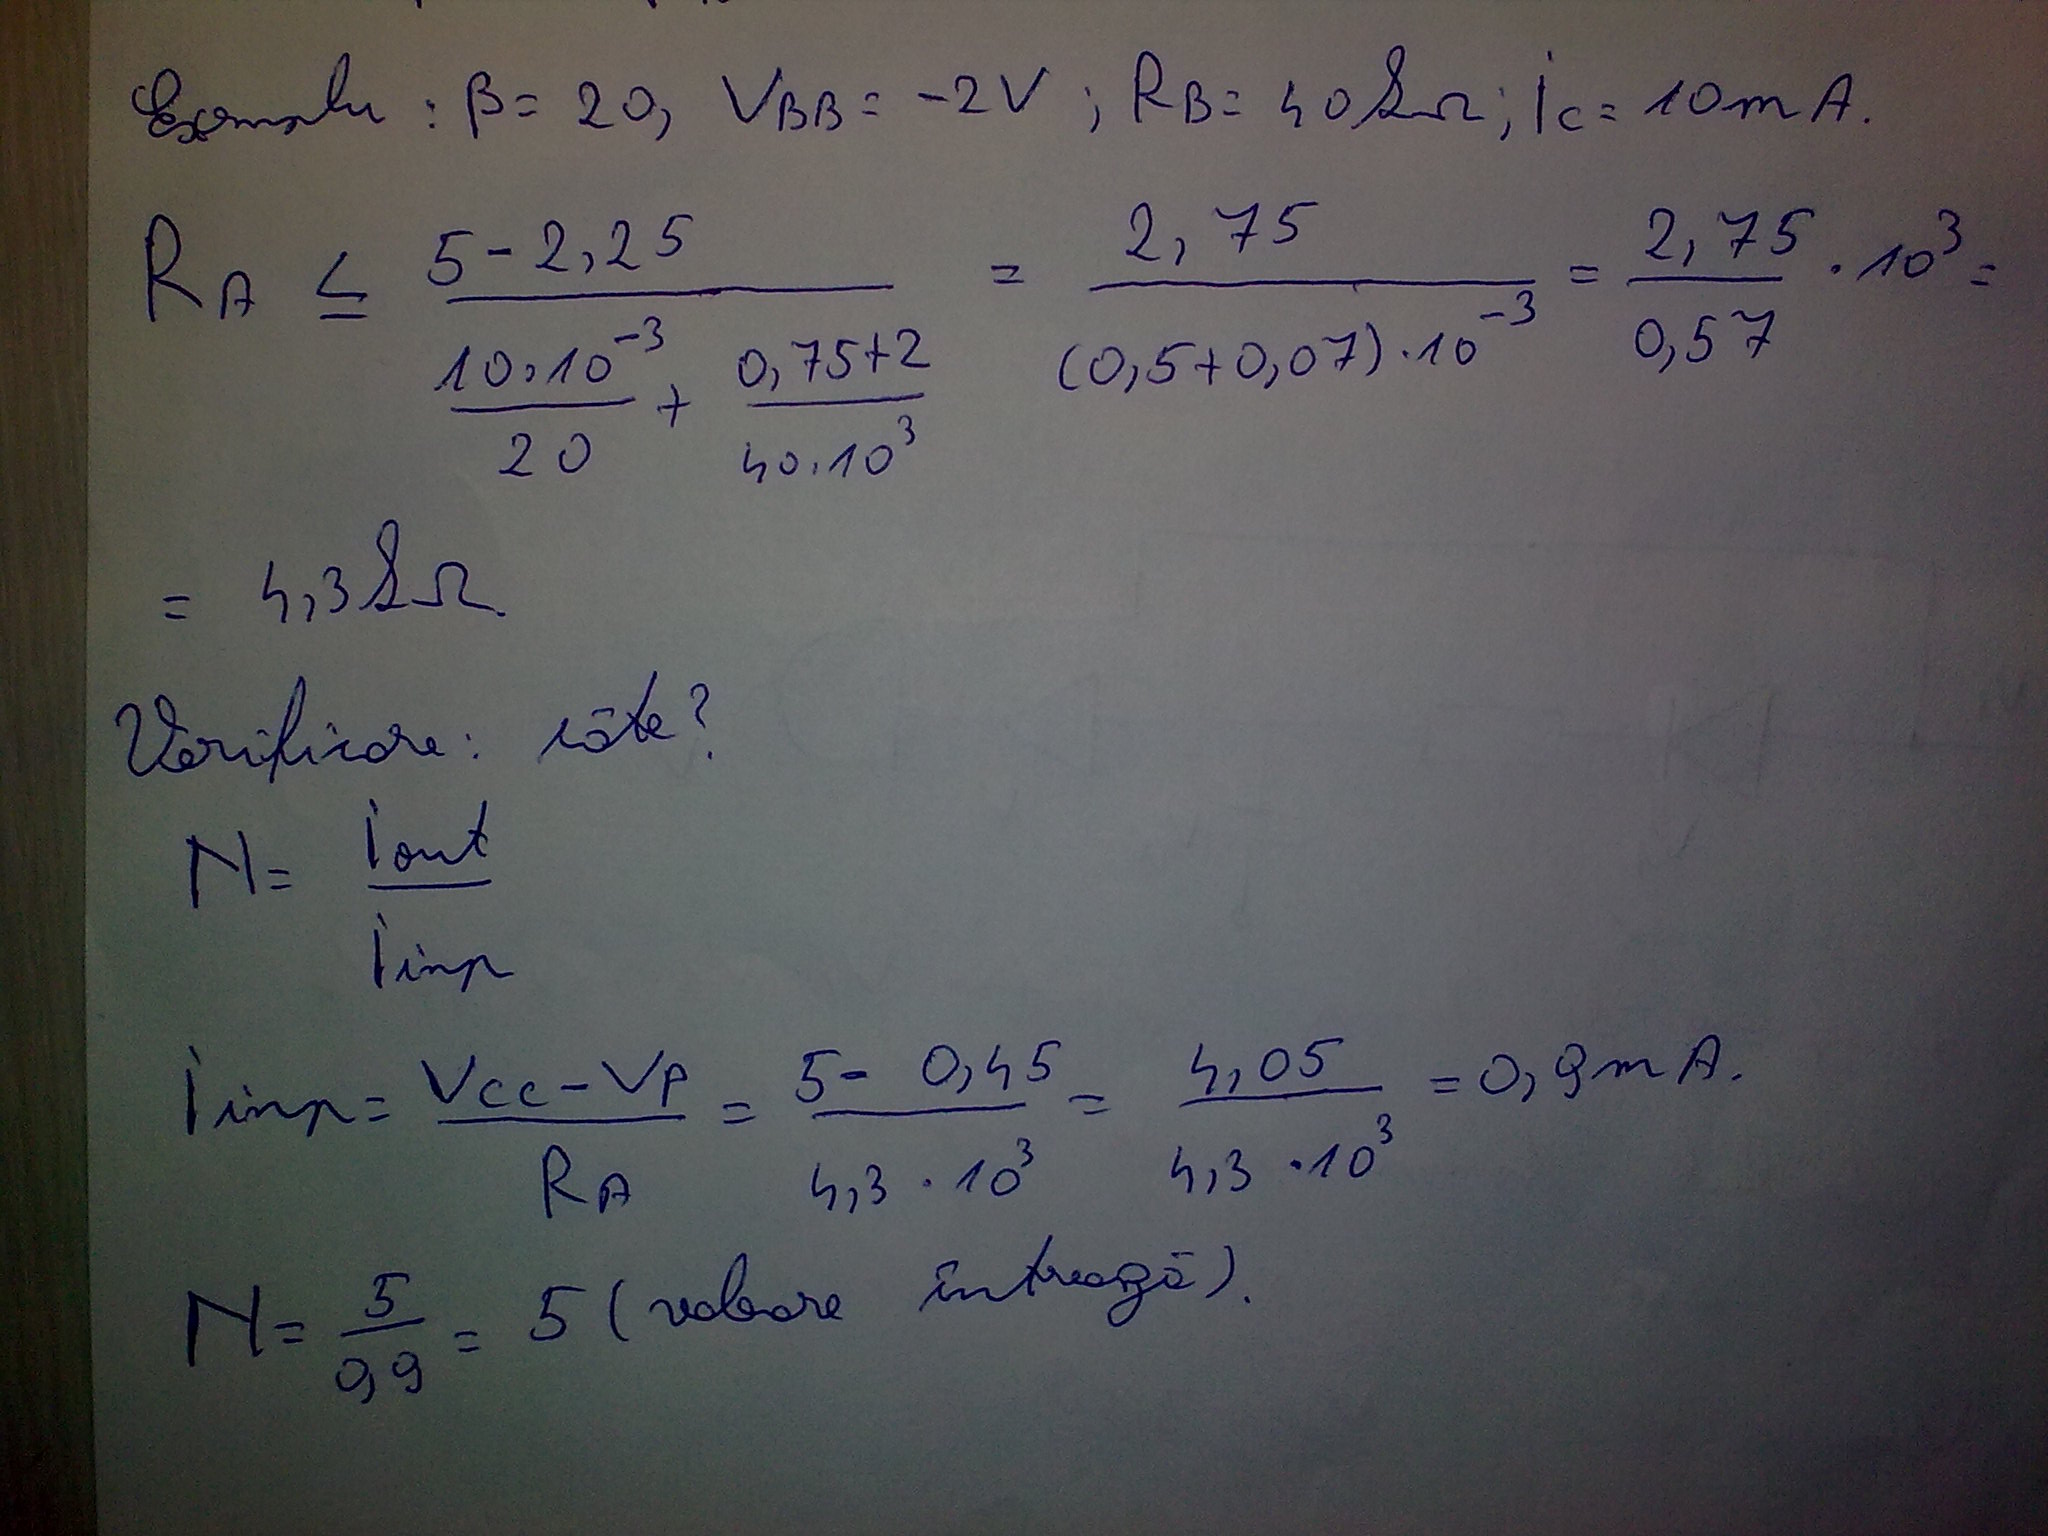 Exemplu : β = 20, VBB = -2V ; RB = 40 kΩ ; Ic = 10 mA.
RA ≤ (5 - 2,25) / (10·10^-3 / 20 + (0,75+2) / (40·10^3)) = 2,75 / ((0,5+0,07)·10^-3) = 2,75 / 0,57 · 10^3 =
= 4,3 kΩ.
Verificare: câte?
N = Iout / Iinp
Iinp = (Vcc - VP) / RA = (5 - 0,45) / (4,3 · 10^3) = 4,05 / (4,3 · 10^3) = 0,9 mA.
N = 5 / 0,9 = 5 (valoare întreagă).